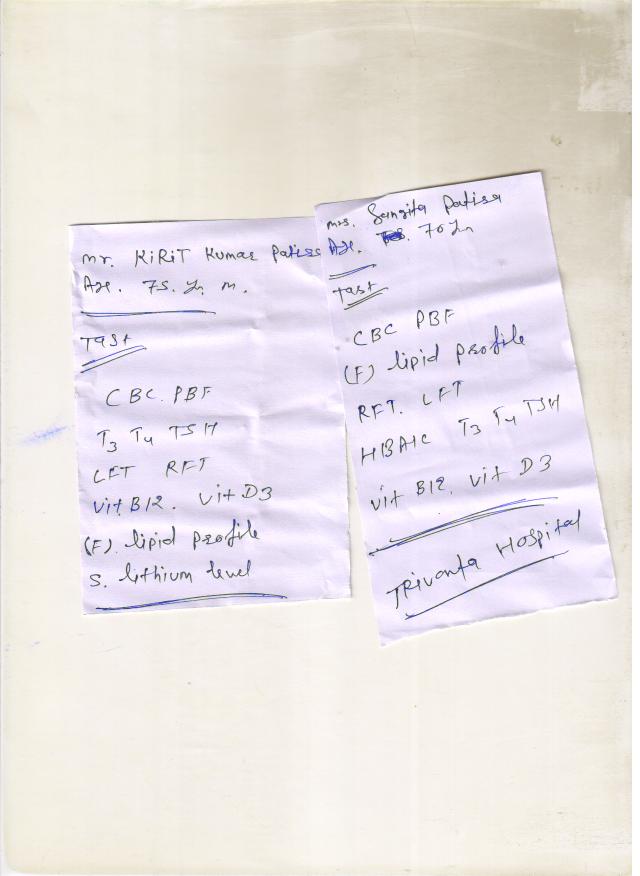 mr. KiRiT Kumar
Age. 75. yr. m.
Tast
CBC. PBF
T3 T4 TSH
LFT RFT
vit B12. vit D3
(F). lipid profile
S. lithium level
mrs. Sangita
Age. 70 yr
Tast
CBC PBF
(F) lipid profile
RFT. LFT
HBAIC T3 T4 TSH
vit B12, vit D3
TRivanta Hospital